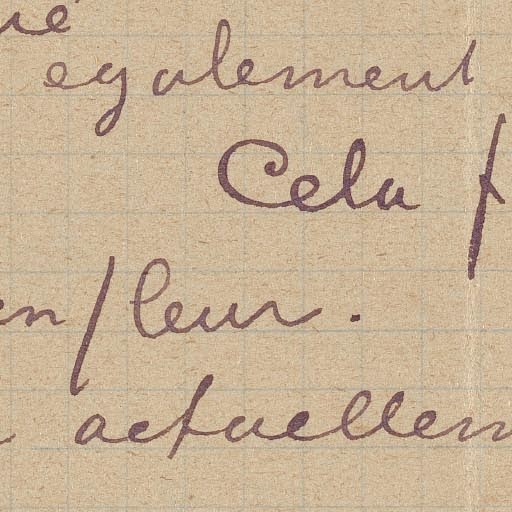 egalement
Cela
leur.
actuellem